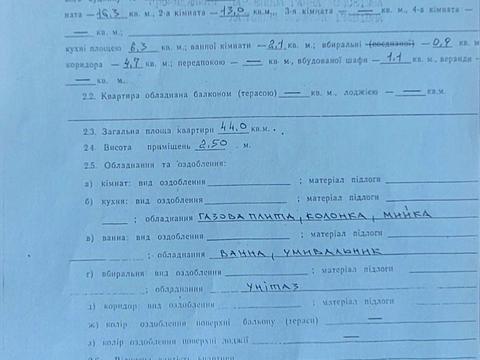 ната — 16,3 кв. м.; 2-а кімната — 13,0 кв.м., 3-я кімната — — кв. м., 4-а кімната —
— кв. м.;
кухні площею 6,3 кв. м.; ванної кімнати — 2,1 кв. м.; вбиральні (поєднаної) — 0,9 кв. м
коридора — 4,7 кв. м.; передпокою — — кв. м., вбудованої шафи — 1,1 кв. м., веранди -
— кв. м.
2.2. Квартира обладнана балконом (терасою) — кв. м., лоджією — — кв.м.
2.3. Загальна площа квартири 44,0 кв.м.
2.4. Висота приміщень 2,50 м.
2.5. Обладнання та оздоблення:
а) кімнат: вид оздоблення ; матеріал підлоги
б) кухня: вид оздоблення ; матеріал підлоги
; обладнання ГАЗОВА ПЛИТА, КОЛОНКА, МИЙКА
в) ванна: вид оздоблення ; матеріал підлоги
; обладнання ВАННА, УМИВАЛЬНИК
г) вбиральня: вид оздоблення ; матеріал підлоги
; обладнання УНІТАЗ
д) коридор: вид оздоблення ; матеріал підлоги
ж) колір оздоблення поверхні балкону (тераси) —
з) колір оздоблення поверхні лоджії —